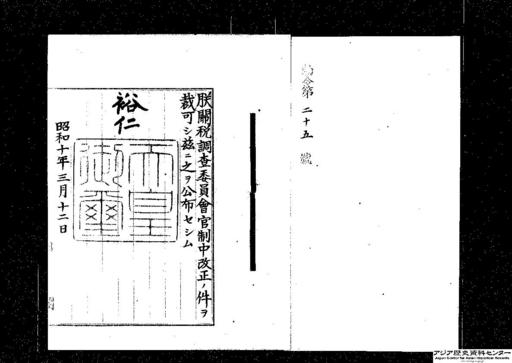 勅令第二十五號
朕關税調査委員會官制中改正ノ件ヲ
裁可シ茲ニ之ヲ公布セシム
裕仁
天皇御璽
昭和十年三月十二日
アジア歴史資料センター
Japan Center for Asian Historical Records